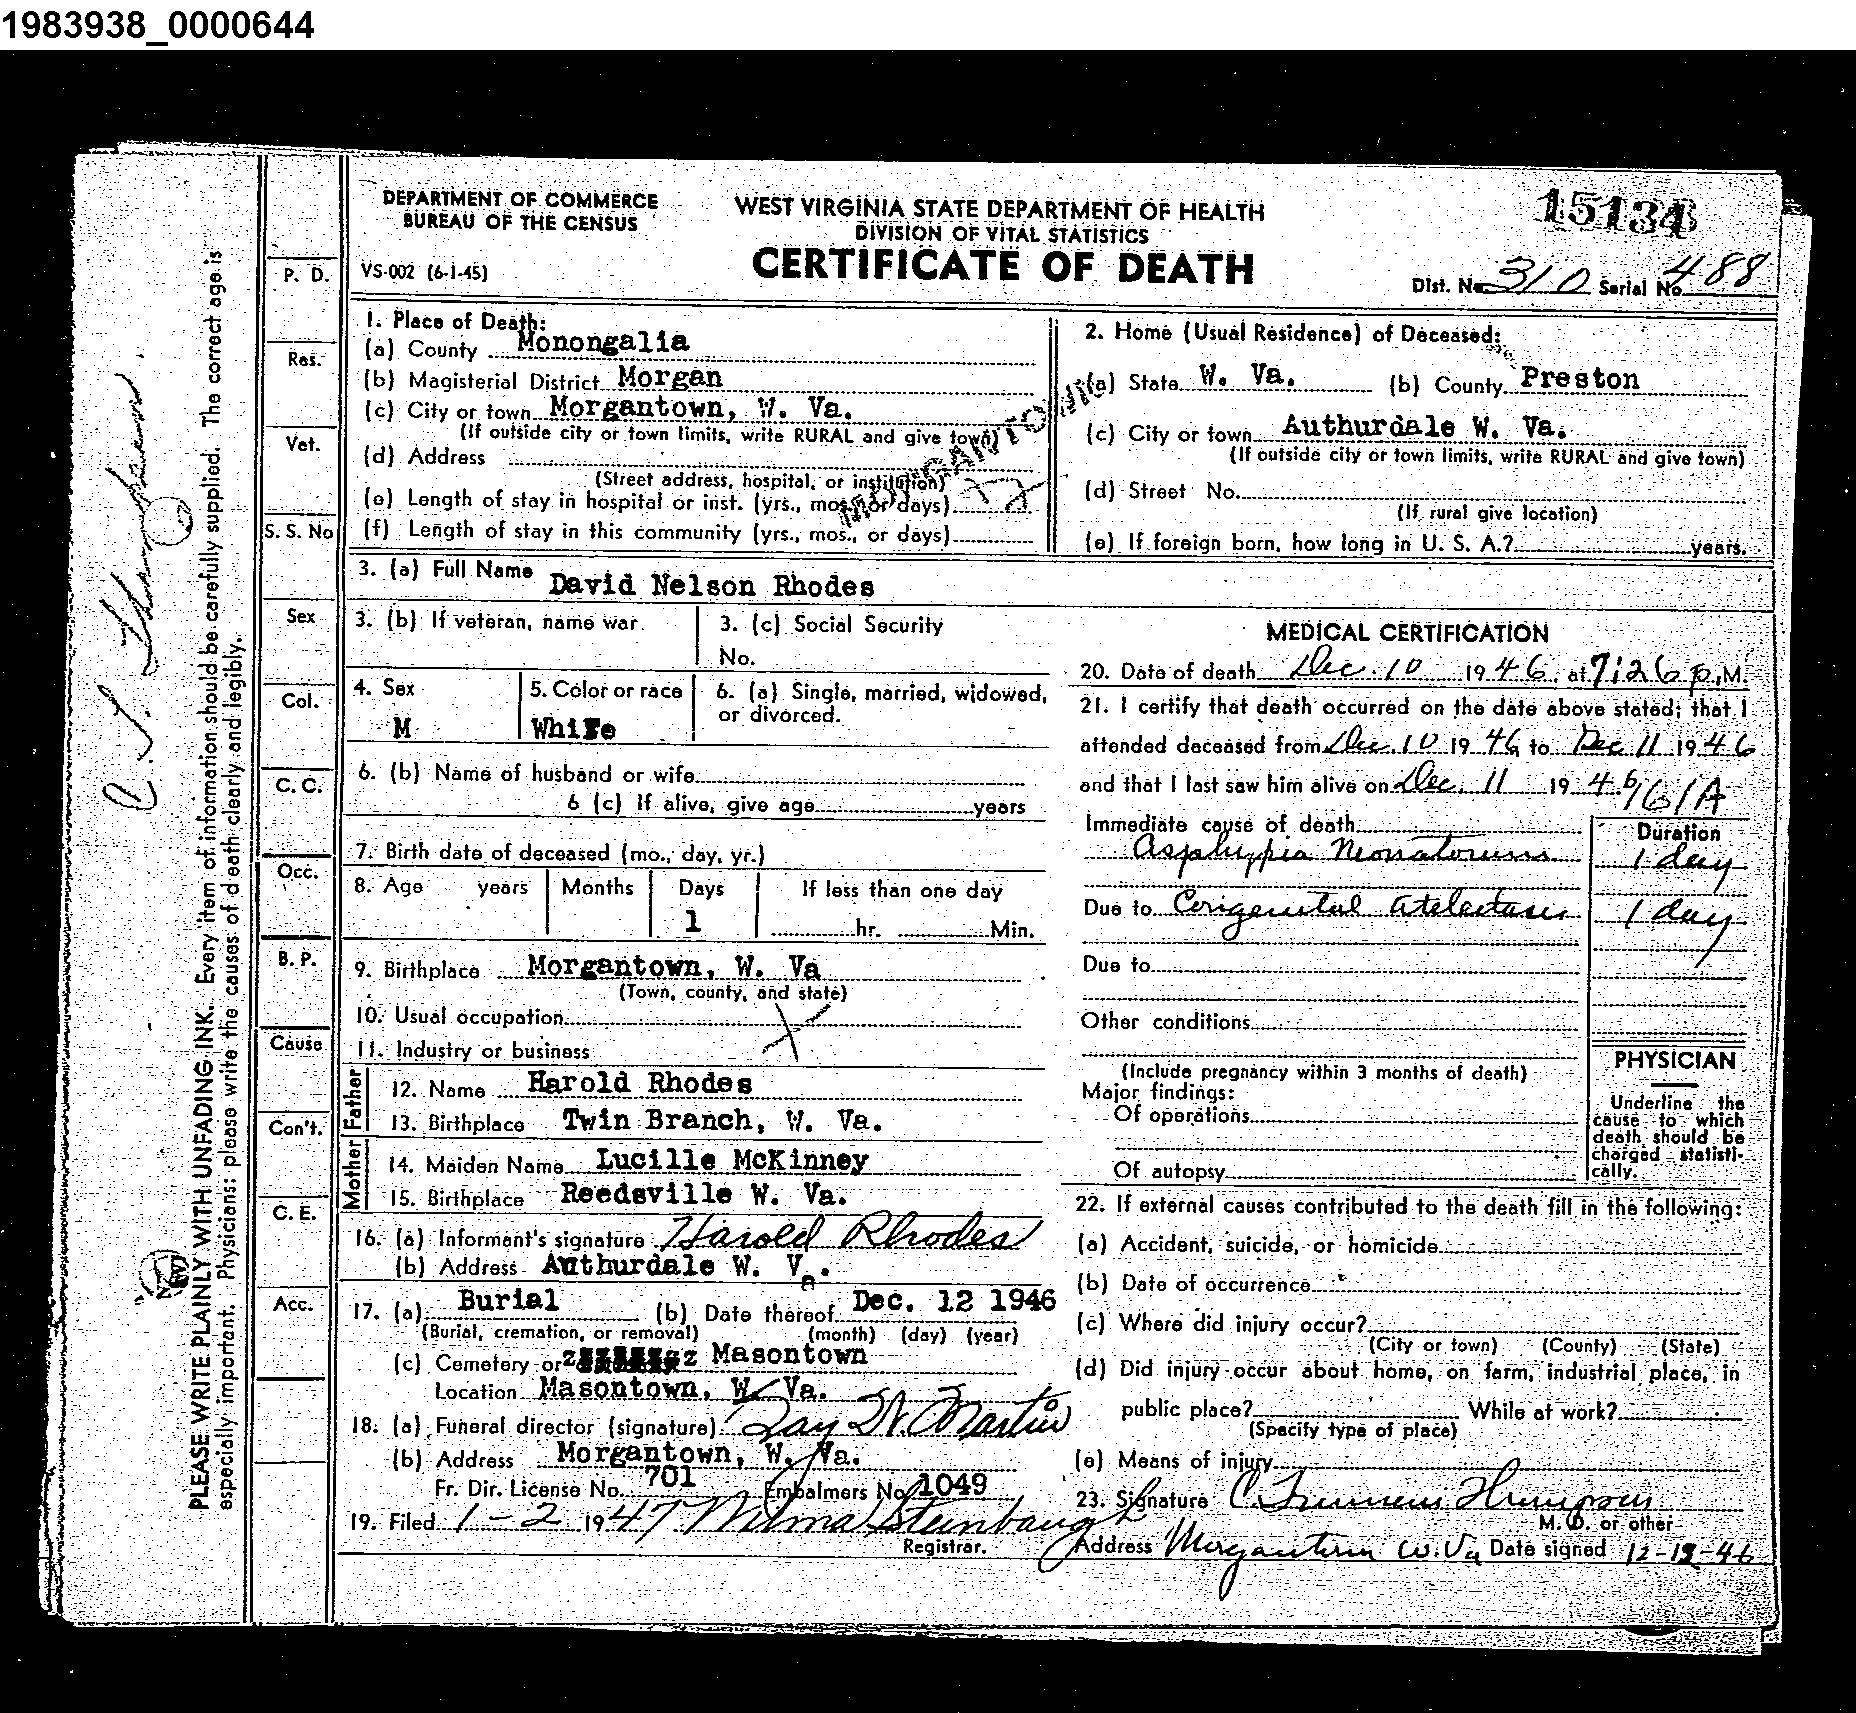 1983938_0000644
DEPARTMENT OF COMMERCE
BUREAU OF THE CENSUS
WEST VIRGINIA STATE DEPARTMENT OF HEALTH
DIVISION OF VITAL STATISTICS
CERTIFICATE OF DEATH
VS-002 (6-1-45)
15134
Dist. No. 310 Serial No. 488
P. D.
Res.
Vet.
S. S. No
Sex
Col.
C. C.
Occ.
B. P.
Cause
Con't.
C. E.
Acc.
PLEASE WRITE PLAINLY WITH UNFADING INK. Every item of information should be carefully supplied. The correct age is
especially important. Physicians: please write the causes of death clearly and legibly.
1. Place of Death:
(a) County Monongalia
(b) Magisterial District Morgan
(c) City or town Morgantown, W. Va.
(If outside city or town limits, write RURAL and give town)
(d) Address
(Street address, hospital, or institution)
(e) Length of stay in hospital or inst. (yrs., mos., or days)
(f) Length of stay in this community (yrs., mos., or days)
MORGANTOWN
2. Home (Usual Residence) of Deceased:
(a) State W. Va. (b) County Preston
(c) City or town Authurdale W. Va.
(If outside city or town limits, write RURAL and give town)
(d) Street No.
(If rural give location)
(e) If foreign born, how long in U. S. A.? years.
3. (a) Full Name David Nelson Rhodes
3. (b) If veteran, name war
3. (c) Social Security
No.
4. Sex
M
5. Color or race
White
6. (a) Single, married, widowed,
or divorced.
6. (b) Name of husband or wife
6 (c) If alive, give age years
7. Birth date of deceased (mo., day, yr.)
8. Age years Months Days If less than one day
1 hr. Min.
9. Birthplace Morgantown, W. Va
(Town, county, and state)
10. Usual occupation
11. Industry or business
Father
12. Name Harold Rhodes
13. Birthplace Twin Branch, W. Va.
Mother
14. Maiden Name Lucille McKinney
15. Birthplace Reedsville W. Va.
16. (a) Informant's signature Harold Rhodes
(b) Address Authurdale W. Va.
17. (a) Burial (b) Date thereof Dec. 12 1946
(Burial, cremation, or removal) (month) (day) (year)
(c) Cemetery or Masontown
Location Masontown, W. Va.
18. (a) Funeral director (signature) Ray W. Martin
(b) Address Morgantown, W. Va.
Fr. Dir. License No. 701 Embalmers No. 1049
19. Filed 1-2 1947 Wilma Steinbaugh
Registrar.
MEDICAL CERTIFICATION
20. Date of death Dec. 10 1946, at 7:26 p.M.
21. I certify that death occurred on the date above stated; that I
attended deceased from Dec. 10 1946 to Dec 11 1946
and that I last saw him alive on Dec. 11 1946
161A
Immediate cause of death
Duration
Asphyxia Neonatorum 1 day
Due to Congenital Atelectasis 1 day
Due to
Other conditions
(Include pregnancy within 3 months of death)
Major findings:
Of operations
Of autopsy
PHYSICIAN
Underline the
cause to which
death should be
charged statisti-
cally.
22. If external causes contributed to the death fill in the following:
(a) Accident, suicide, or homicide
(b) Date of occurrence
(c) Where did injury occur?
(City or town) (County) (State)
(d) Did injury occur about home, on farm, industrial place, in
public place? While at work?
(Specify type of place)
(e) Means of injury
23. Signature C. Thompson
M. D. or other
Address Morgantown W. Va Date signed 12-12-46